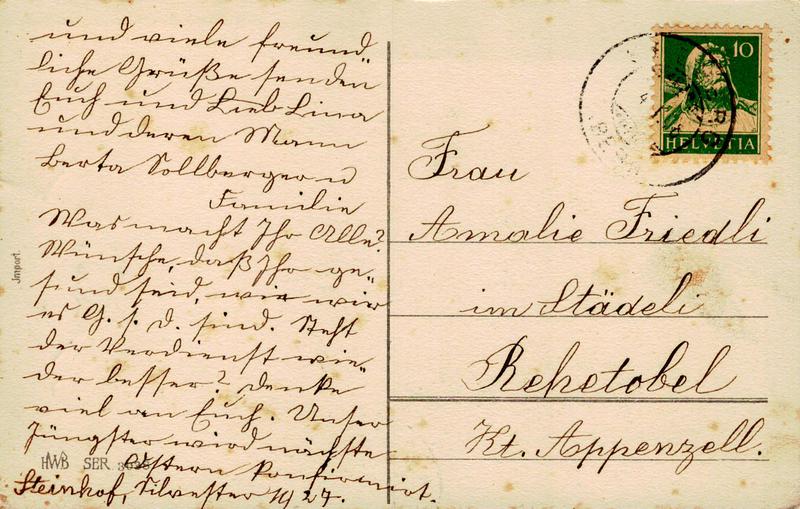 und viele freund„
liche Grüße senden
Euch und Lieb Lina
und deren Mann
Berta Sollberger u
Familie
Was macht Ihr Alle?
Wünsche, daß Ihr ge„
sund seid, wie wir
es G. s. d. sind. Steht
der Verdienst wie„
der besser? Denke
viel an Euch. Unser
Jüngster wird nächste
Ostern konfirmirt.
Steinhof, Silvester 1927.
Import.
HWB SER.
10
HELVETIA
Frau
Amalie Friedli
im Städeli
Rehetobel
Kt. Appenzell.